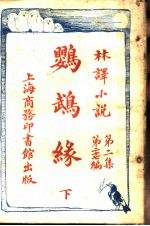 林譯小說
第二集
第七編
鸚鵡緣
下
上海商務印書館出版